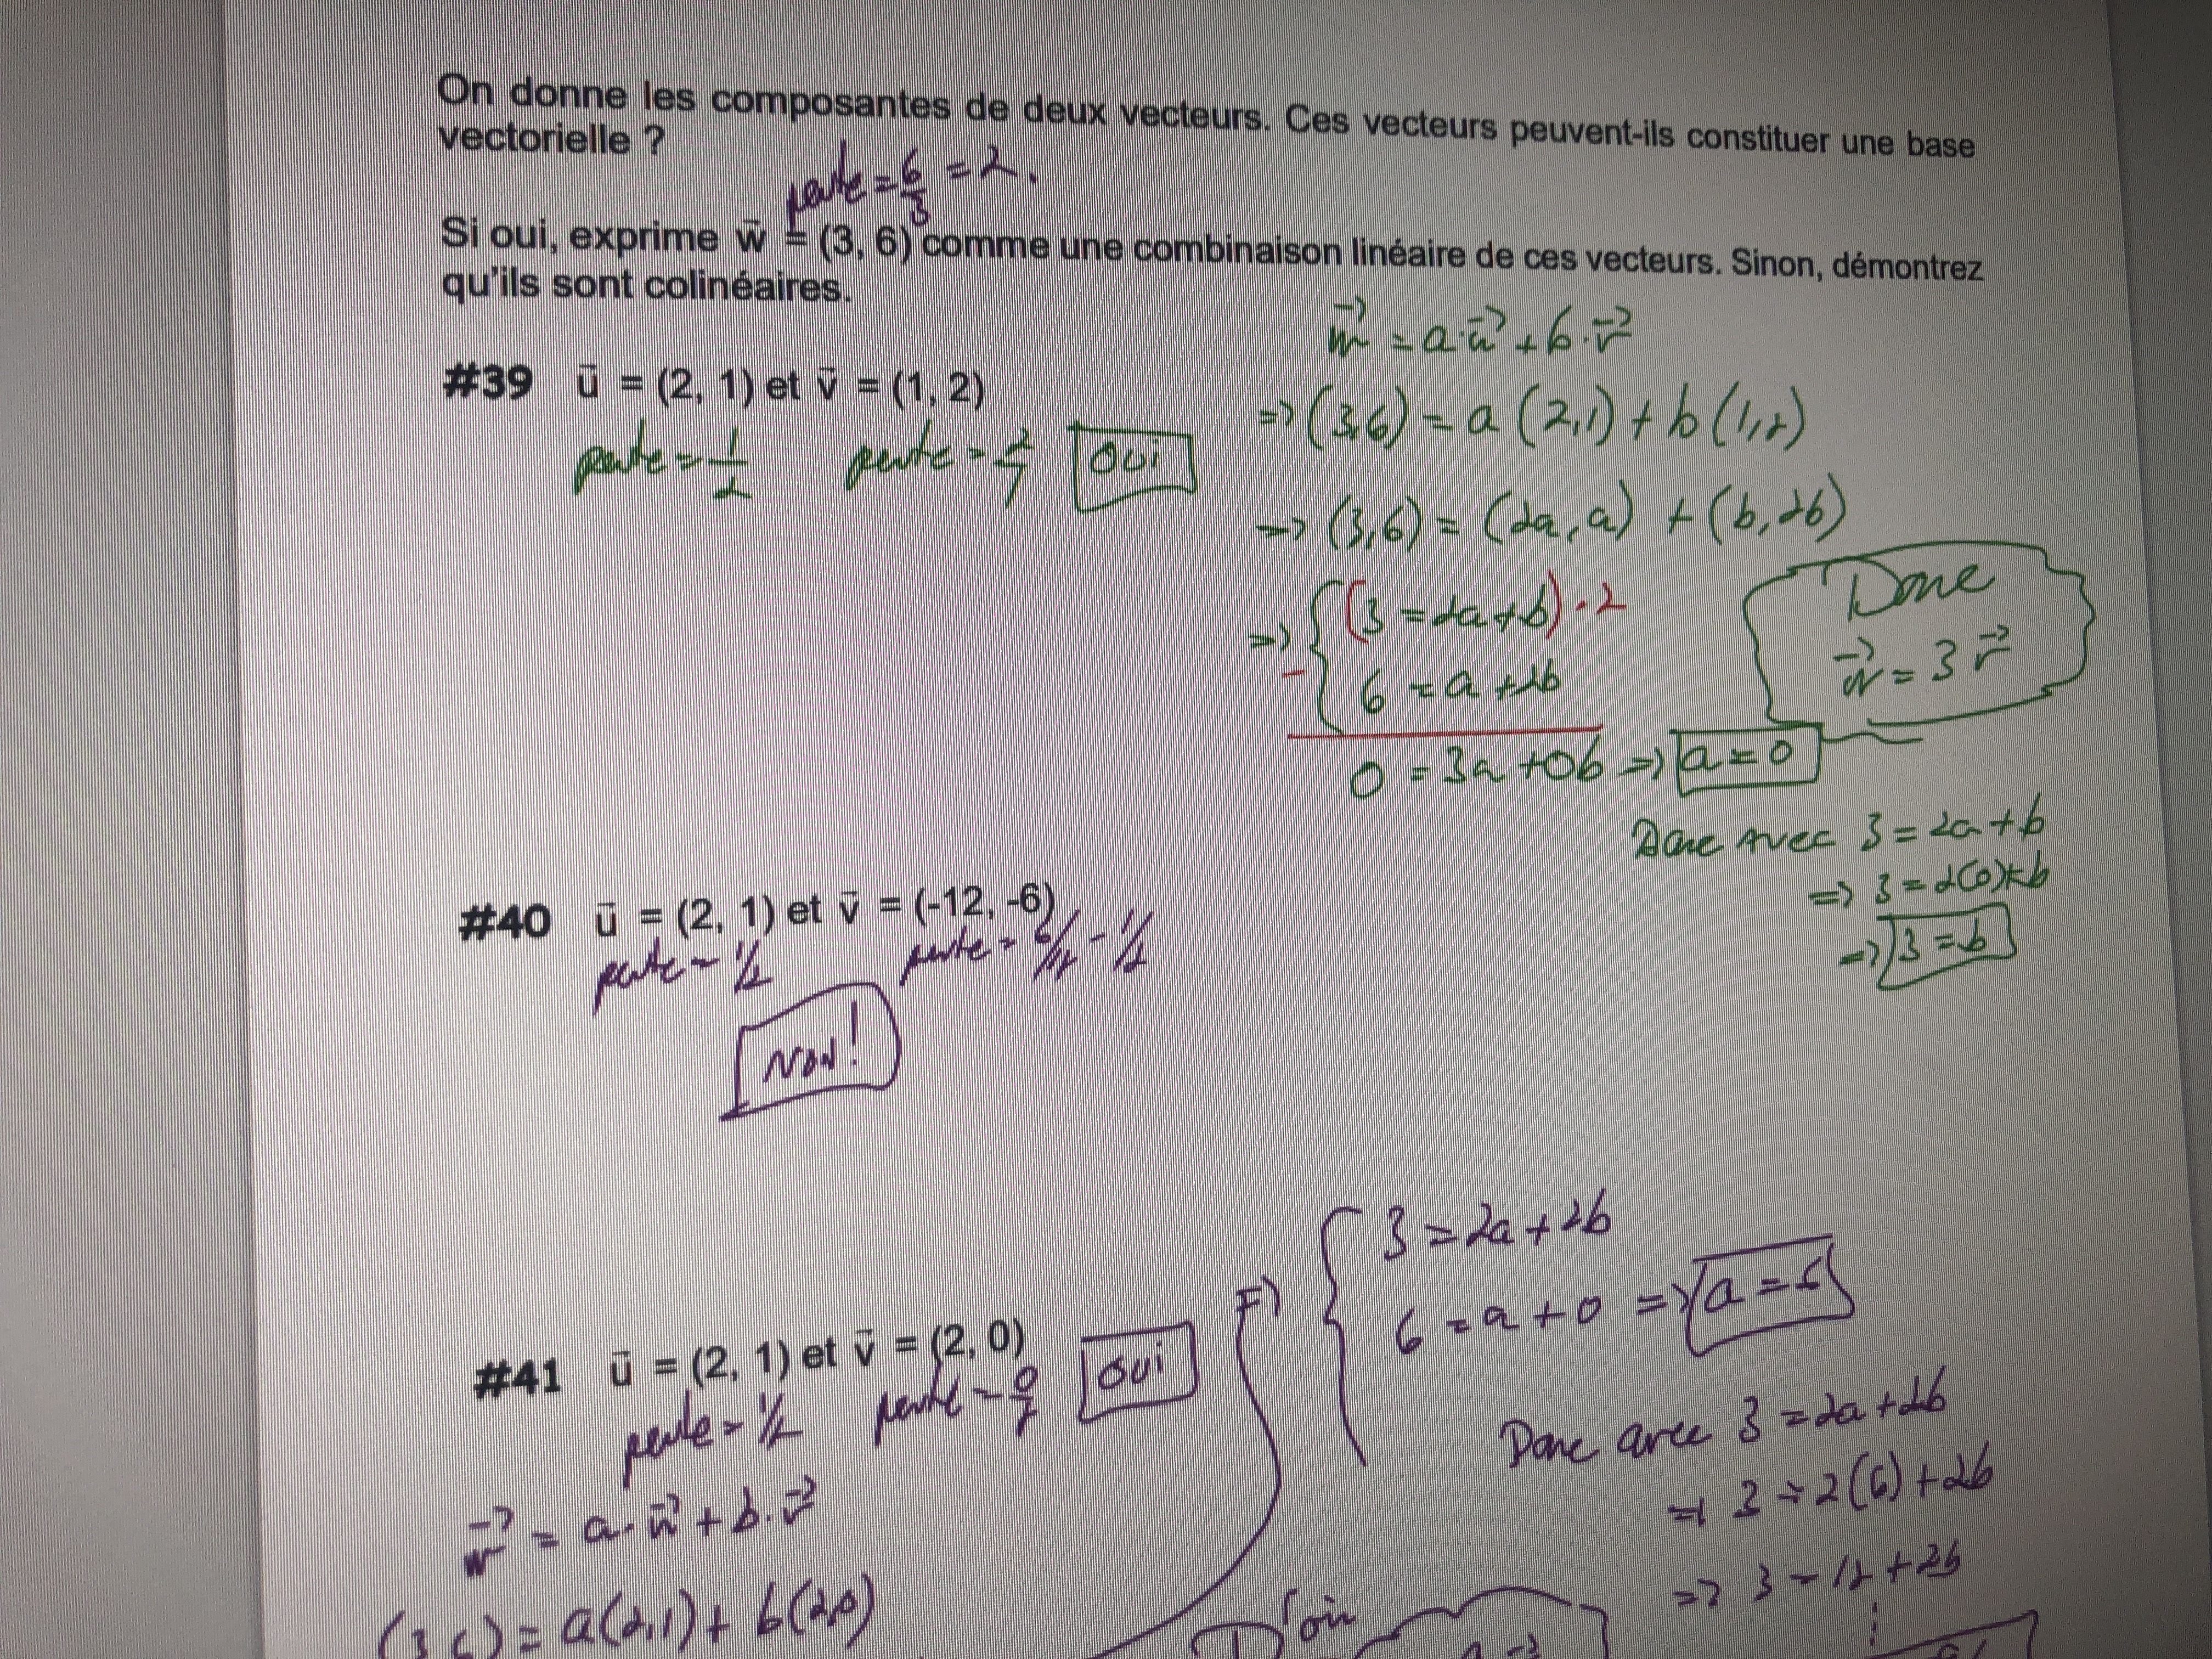 On donne les composantes de deux vecteurs. Ces vecteurs peuvent-ils constituer une base
vectorielle ?
pente = 6/3 = 2.
Si oui, exprime w⃗ = (3, 6) comme une combinaison linéaire de ces vecteurs. Sinon, démontrez
qu'ils sont colinéaires.
w⃗ = a·u⃗ + b·v⃗
#39 u⃗ = (2, 1) et v⃗ = (1, 2)
=> (3,6) = a (2,1) + b (1,2)
pente = 1/2 pente = 2/1 OUI
=> (3,6) = (2a, a) + (b, 2b)
=> { (3 = 2a+b) · 2
- 6 = a + 2b
Donc
w⃗ = 3 v⃗
0 = 3a + 0b => a = 0
Donc avec 3 = 2a + b
=> 3 = 2(0) + b
=> 3 = b
#40 u⃗ = (2, 1) et v⃗ = (-12, -6)
pente = 1/2 pente = 6/12 = 1/2
NON!
{ 3 = 2a + 2b
6 = a + 0 => a = 6
#41 u⃗ = (2, 1) et v⃗ = (2, 0)
pente = 1/2 pente = 0/2 OUI
Donc avec 3 = 2a + 2b
=> 3 = 2(6) + 2b
=> 3 = 12 + 2b
w⃗ = a·u⃗ + b·v⃗
(3,6) = a(2,1) + b(2,0)